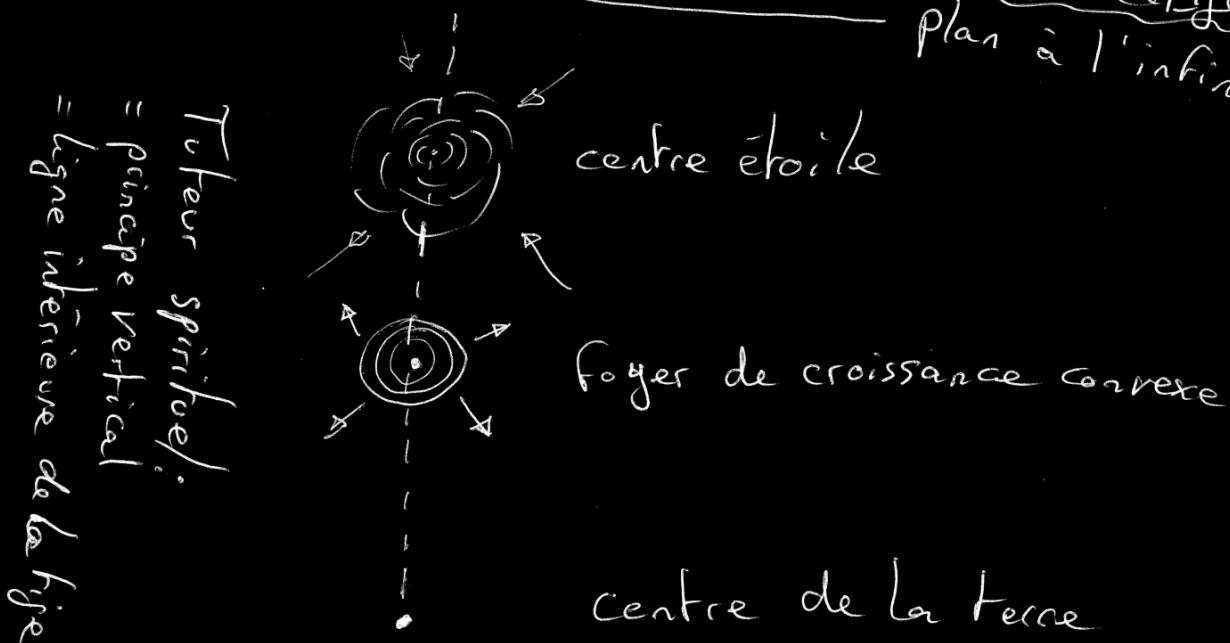 plan à l'infin
centre étoile
foyer de croissance convexe
centre de la terre
Tuteur spirituel :
= principe vertical
= ligne intérieure de la tige